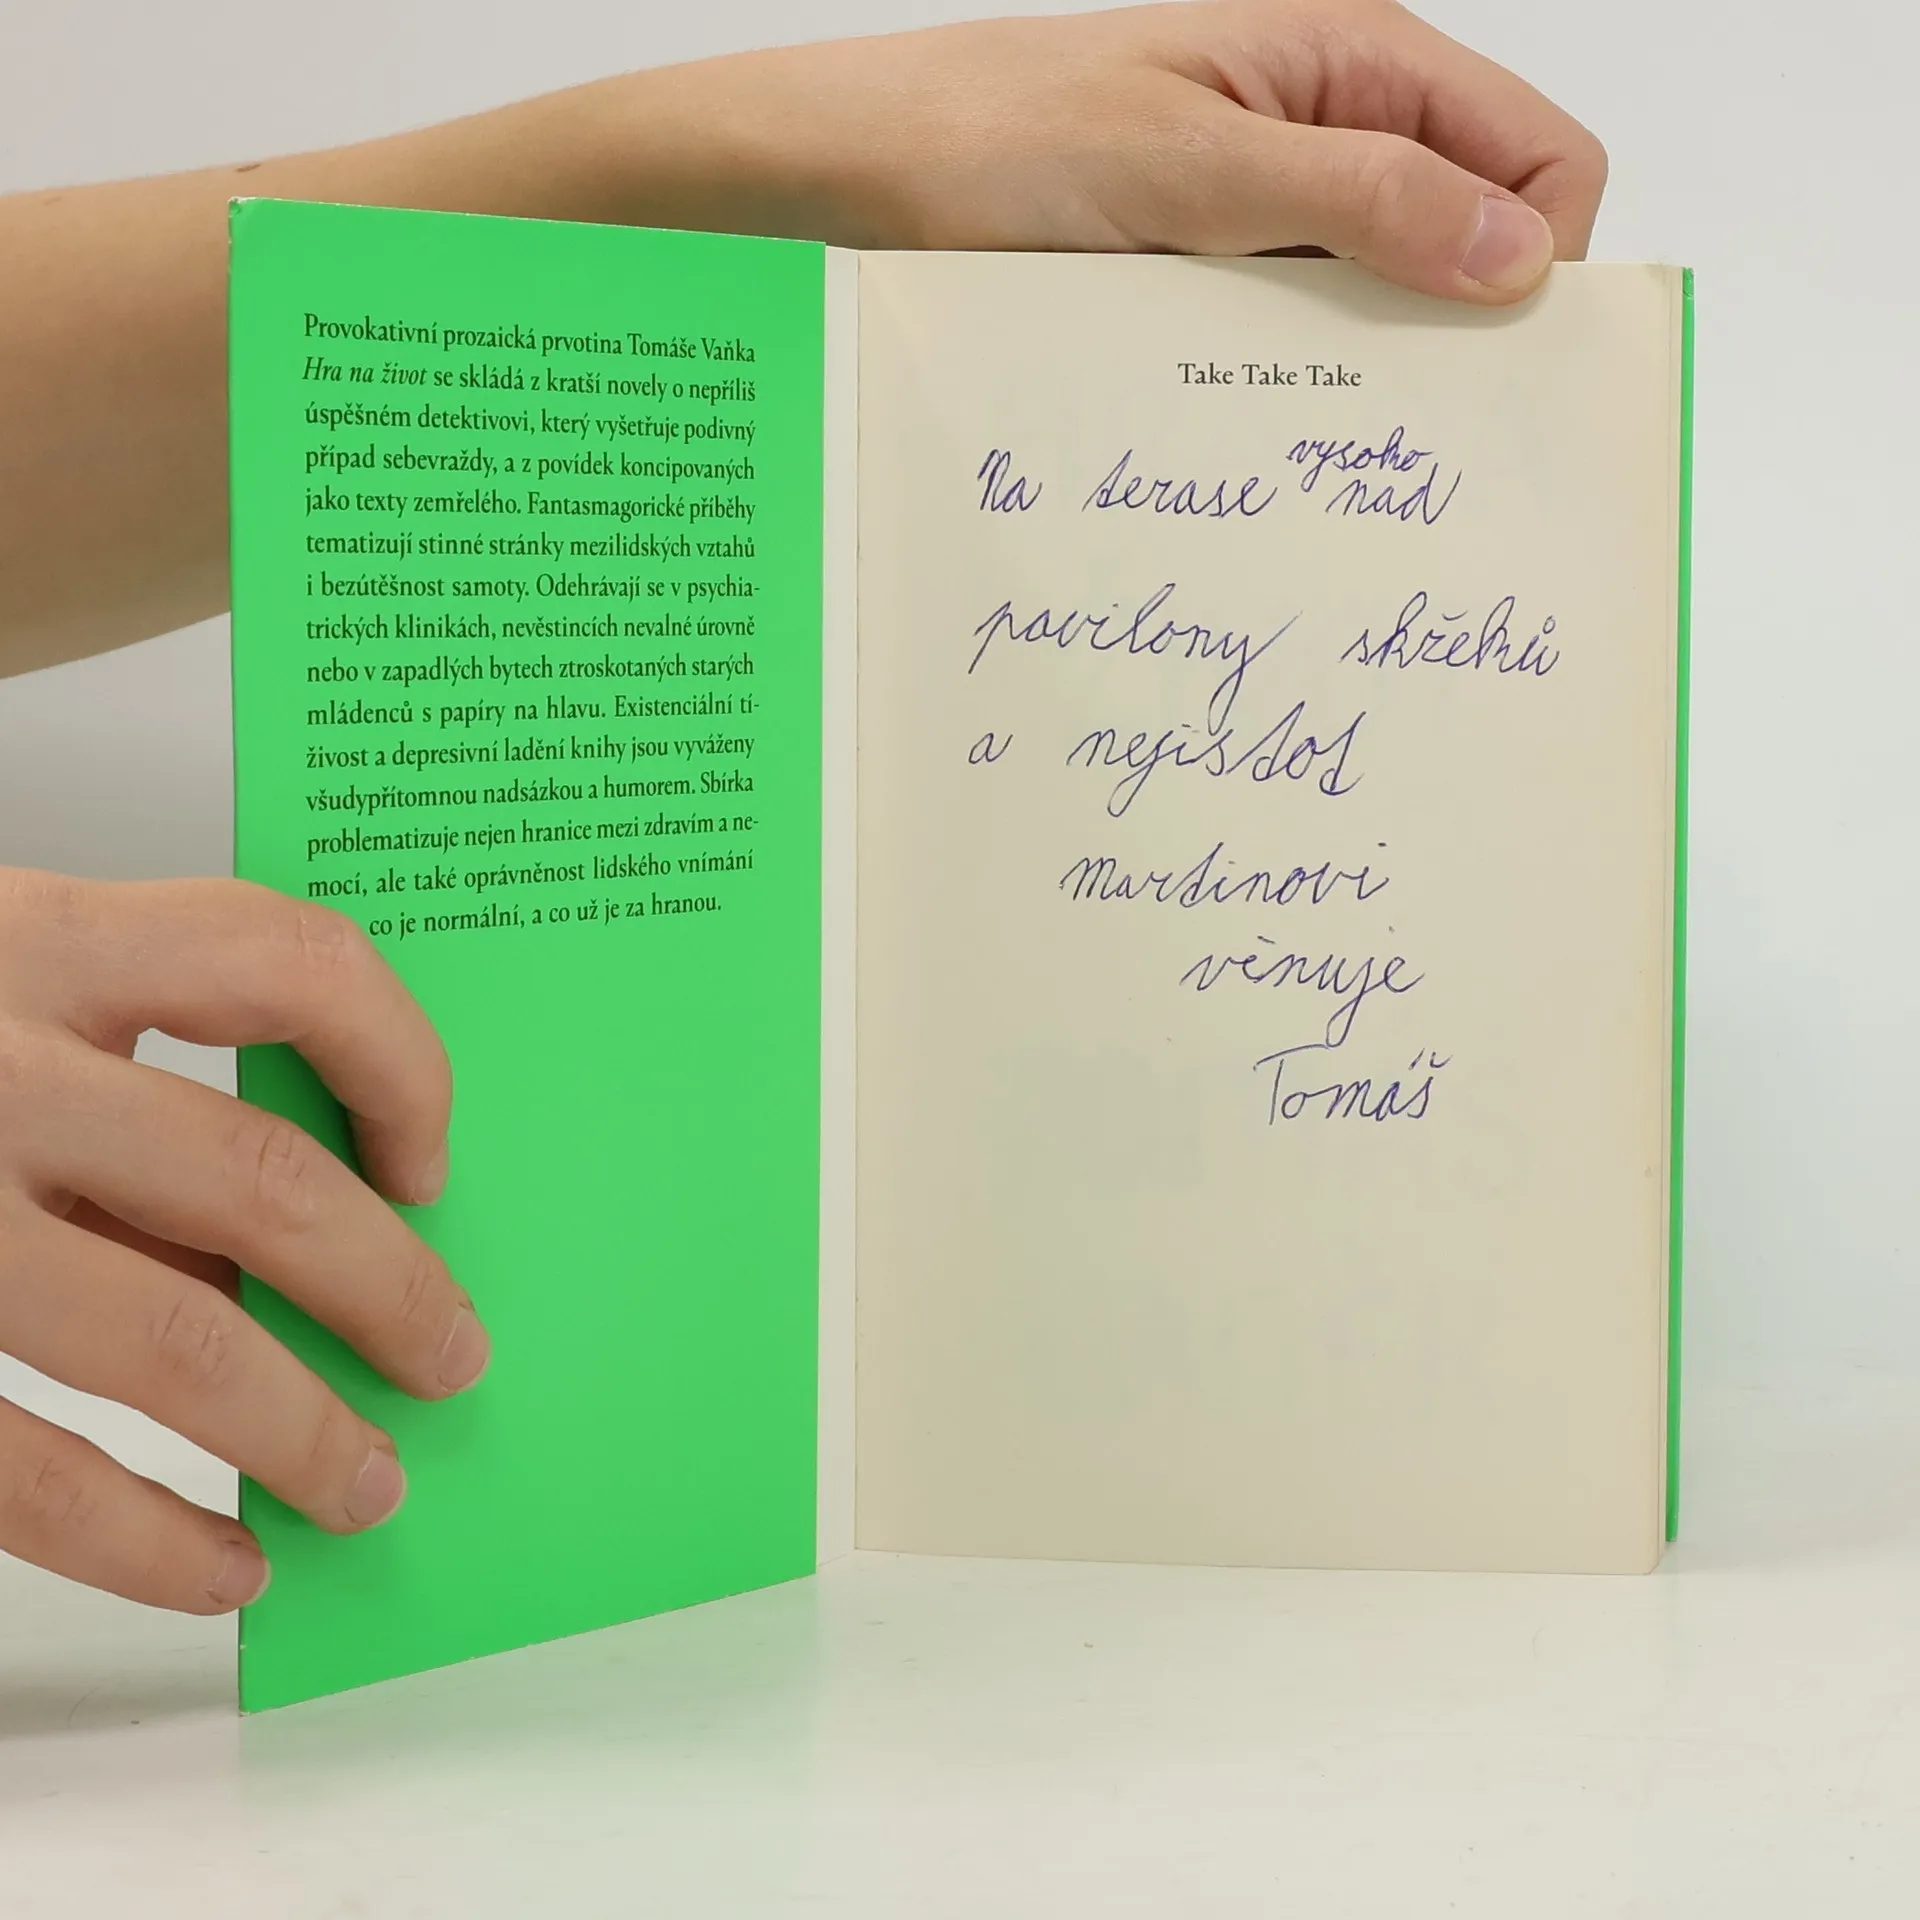 Provokativní prozaická prvotina Tomáše Vaňka
Hra na život se skládá z kratší novely o nepříliš
úspěšném detektivovi, který vyšetřuje podivný
případ sebevraždy, a z povídek koncipovaných
jako texty zemřelého. Fantasmagorické příběhy
tematizují stinné stránky mezilidských vztahů
i bezútěšnost samoty. Odehrávají se v psychia-
trických klinikách, nevěstincích nevalné úrovně
nebo v zapadlých bytech ztroskotaných starých
mládenců s papíry na hlavu. Existenciální tí-
živost a depresivní ladění knihy jsou vyváženy
všudypřítomnou nadsázkou a humorem. Sbírka
problematizuje nejen hranice mezi zdravím a ne-
mocí, ale také oprávněnost lidského vnímání
co je normální, a co už je za hranou.
Take Take Take
Na terase vysoko nad
pavilony skřeků
a nejistot
Martinovi
věnuje
Tomáš